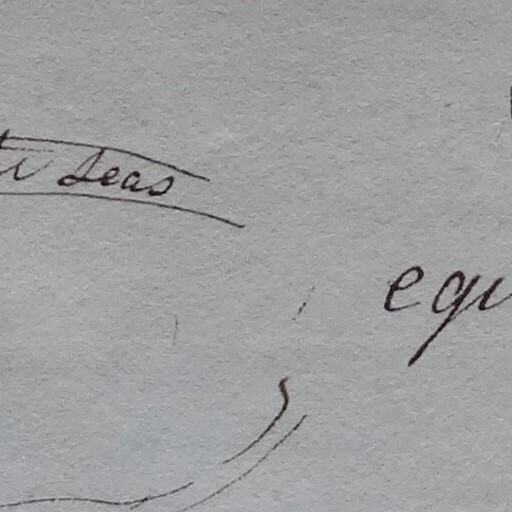 Seas
equ